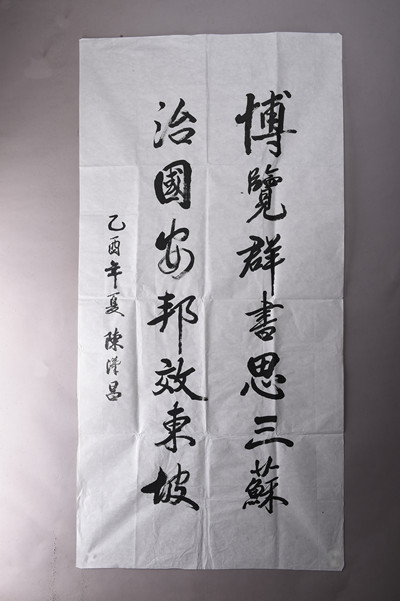 博覽群書思三蘇
治國安邦效東坡
乙酉年夏 陳漢昌